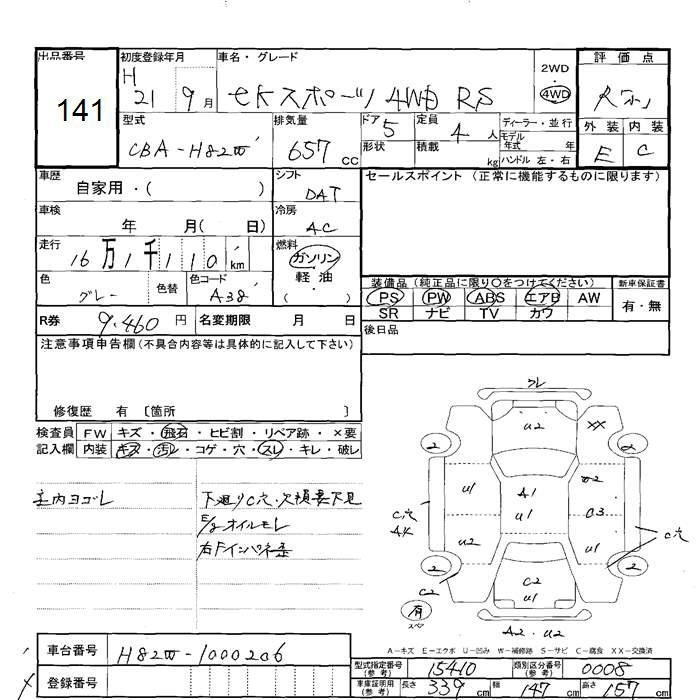 出品番号 初度登録年月 車名・グレード 2WD 評価点
141 H 21 9月 eKスポーツ 4WD RS 4WD
型式 排気量 ドア 定員 ディーラー・並行 外装 内装
CBA-H82W 657cc 5 4人 モデル年式 年 E C
形状 積載 kg ハンドル 左・右
車歴 シフト セールスポイント (正常に機能するものに限ります)
自家用・( ) DAT
車検 冷房
年 月( 日) AC
走行 燃料
16万1千110km ガソリン
軽油
・( )
色 色替 色コード 装備品 (純正品に限り〇をつけてください) 新車保証書
グレー A38 PS PW ABS エアB AW 有・無
SR ナビ TV カワ
R券 9,460円 名変期限 月 日 後日品
注意事項申告欄(不具合内容等は具体的に記入して下さい)
修復歴 有 〔箇所 〕
検査員 FW キズ・飛石・ヒビ割・リペア跡・×要
記入欄 内装 キズ・汚レ・コゲ・穴・スレ・キレ・破レ
室内ヨゴレ 下廻りC穴・欠損要下見
E/gオイルモレ
右Fインパネ
クレ
U2 XX
2
U1 A1
U1 C3
C穴
U2 U1 C穴
2 2
C2 C2
U1
有
スペア
A2・U2
A-キズ E-エクボ U-凹み W-補修跡 S-サビ C-腐食 XX-交換済
車台番号 H82W-1000206 型式指定番号(参考) 15410 類別区分番号(参考) 0008
登録番号 車庫証明用(参考) 長さ 339cm 幅 147cm 高さ 157cm